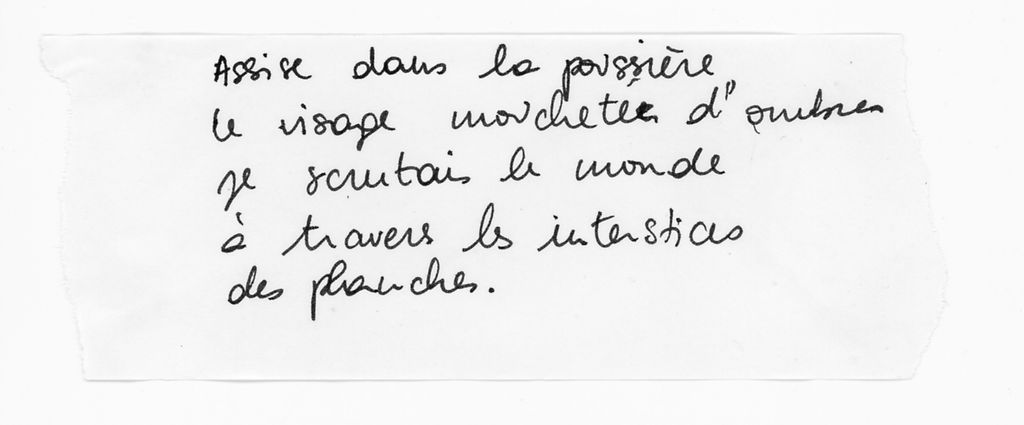 Assise dans la poussière
le visage moucheté d'ombres
je scrutais le monde
à travers les interstices
des planches.